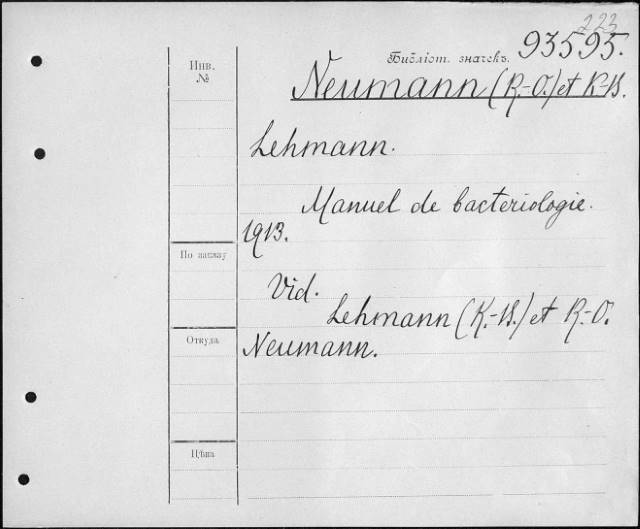 223
Инв. №
Библіот. значекъ. 93595.
Neumann (R.-O.) et K.-B.
Lehmann.
Manuel de bacteriologie.
1913.
По заглву
Vid.
Lehmann (K.-B.) et R.-O.
Откуда
Neumann.
Цѣна